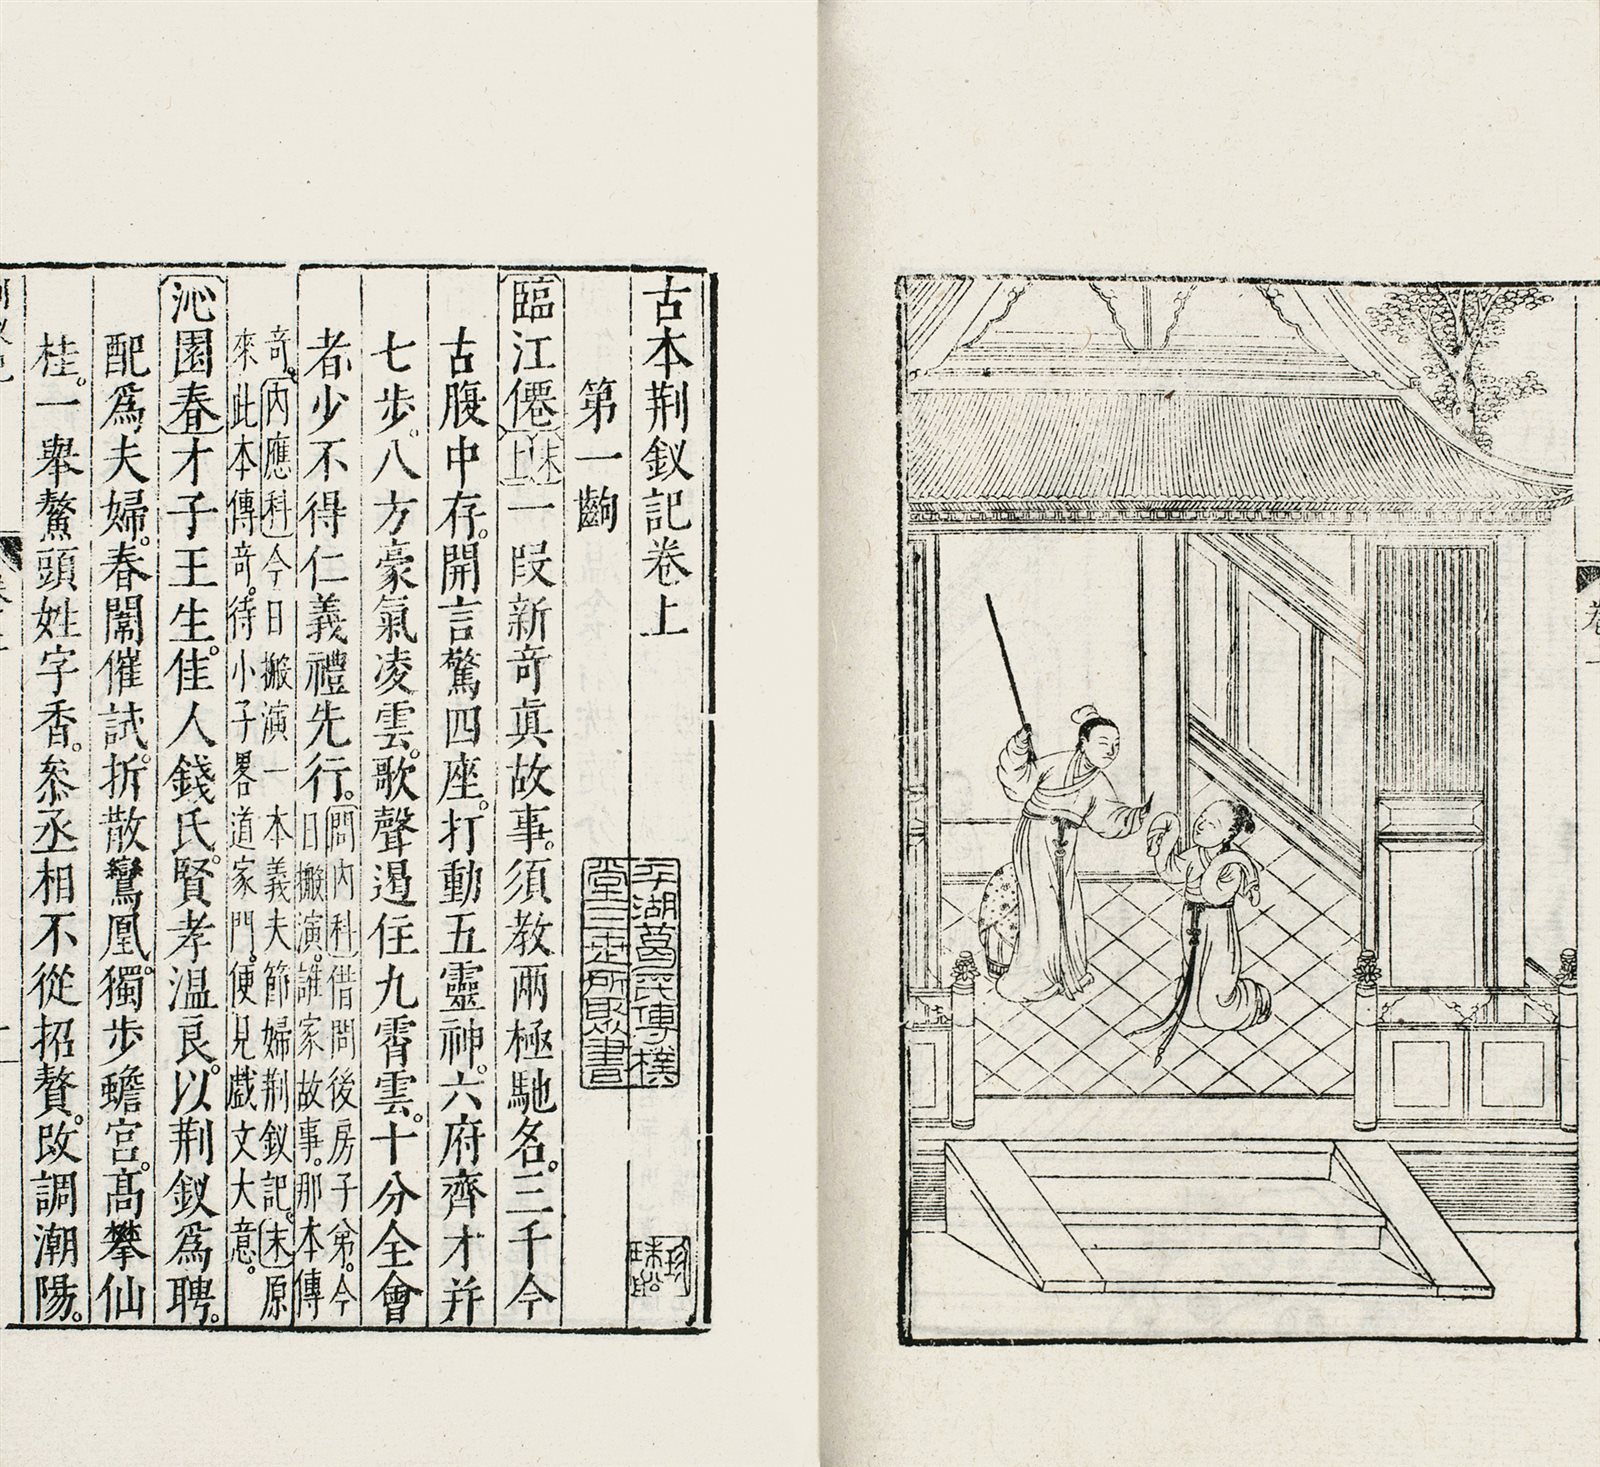 古本荆釵記卷上
第一齣
臨江僊末上一段新奇眞故事。須教兩極馳名。三千今
古腹中存。開言驚四座。打動五靈神。六府齊才并
七步。八方豪氣凌雲。歌聲遏住九霄雲。十分全會
者。少不得仁義禮先行。問內科借問後房子弟。今
日搬演誰家故事。那本傳
奇。內應科今日搬演一本義夫節婦荆釵記。末原
來此本傳奇。待小子畧道家門。便見戲文大意。
沁園春才子王生。佳人錢氏。賢孝温良。以荆釵爲聘。
配爲夫婦。春闈催試。拆散鸞凰。獨步蟾宮。高攀仙
桂。一舉鰲頭姓字香。叅丞相不從招贅。改調潮陽。
平湖葛氏傳樸
堂三世所聚書